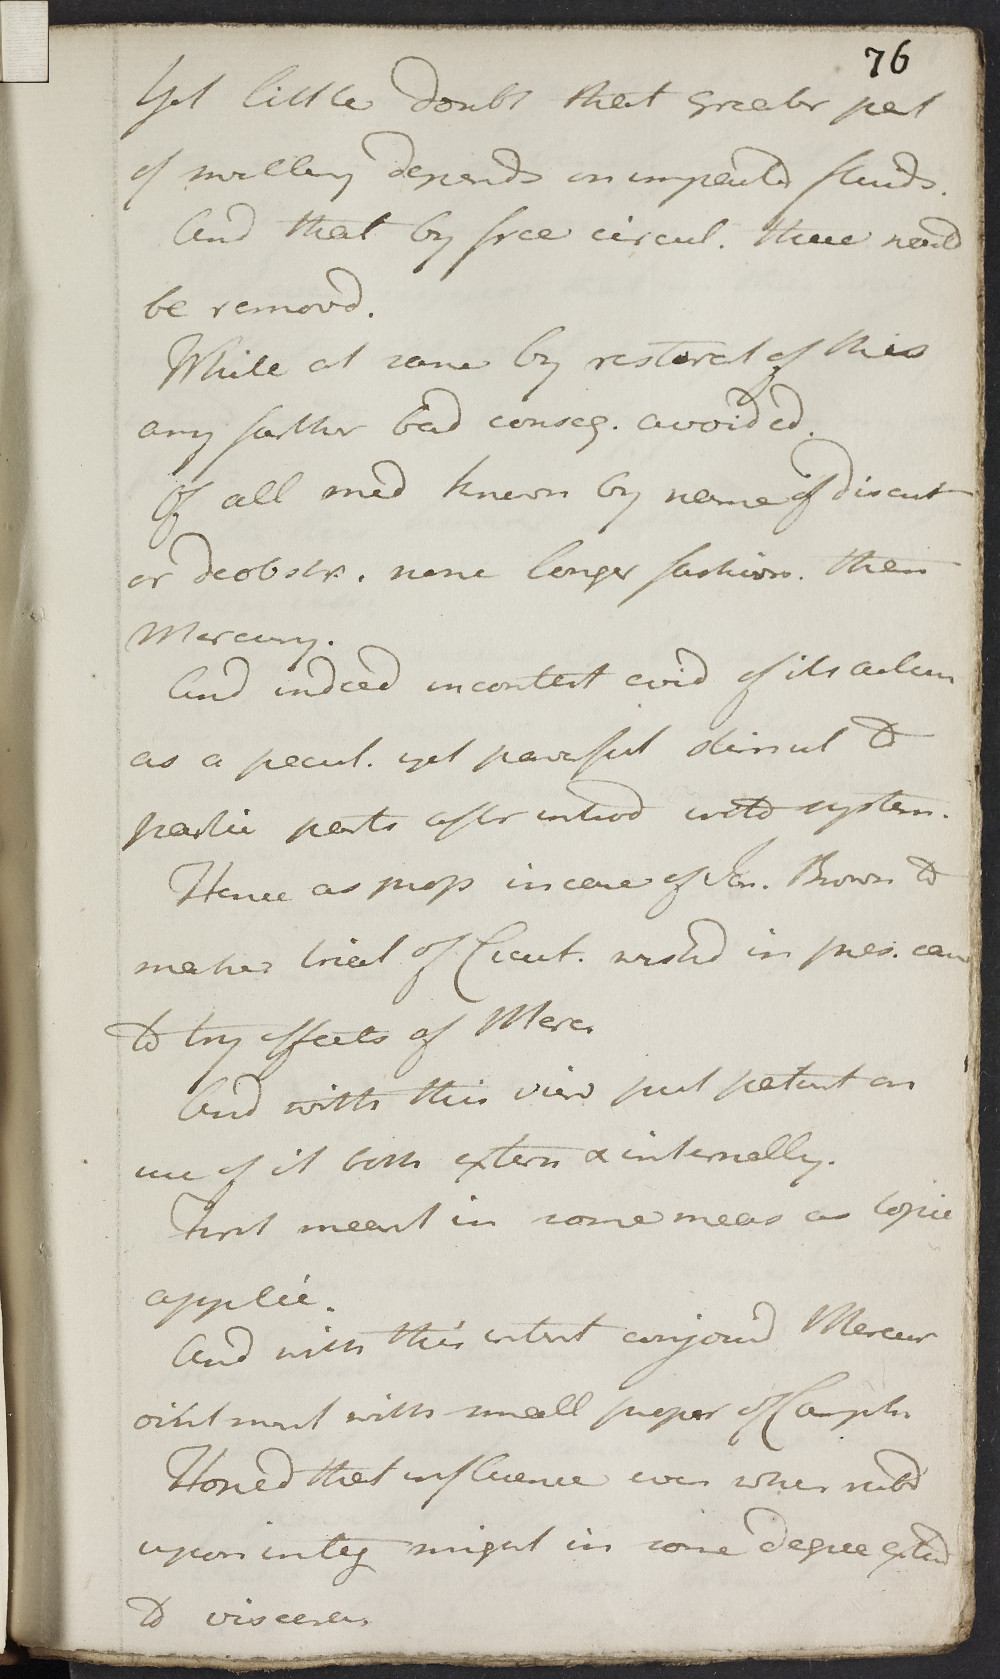 76
Yet little doubt that greater part
of swelling depends on impacted fluids.
And that by free circul. these would
be removd.
While at same by restorat of this
any farther bad conseq. avoided.
Of all med known by name of discut
or deobstr. none longer fashion. then
Mercury.
And indeed incontest evid of its action
as a pecul. yet powerful stimul to
partic parts after introd into system.
Hence as prop in case of Jan. Brown to
make trial of Cicut. wishd in pres. case
to try effects of Merc.
And with this view put patient on
use of it both extern & internally.
First meant in some meas as topic
applic.
And with this intent conjoind Mercur
ointment with small propor of Camphr
Hoped that influence even when rubd
upon integ might in some degree extend
to viscera